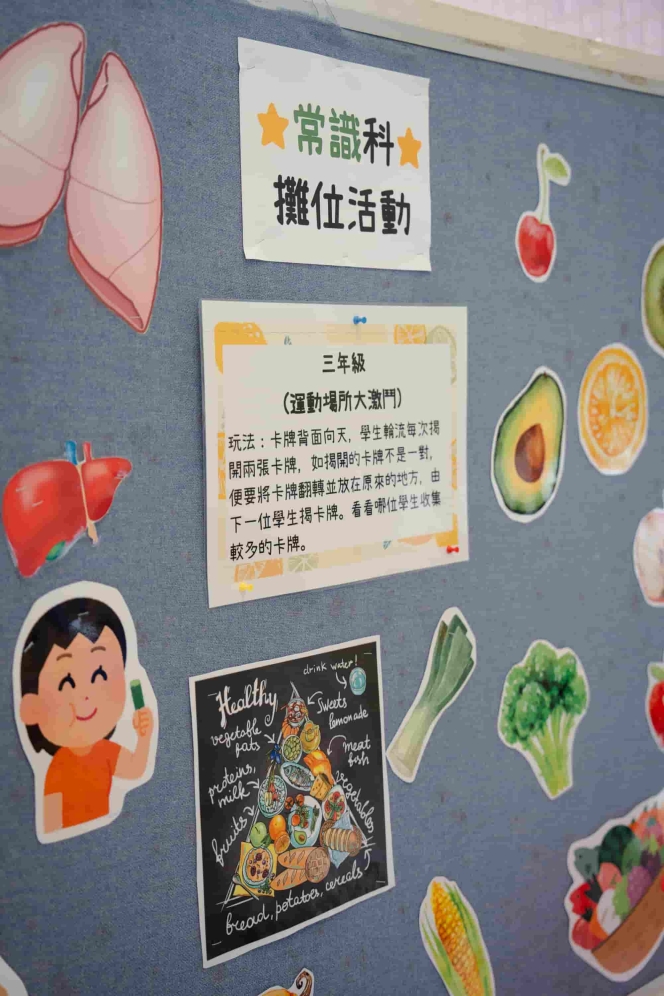 常識科
攤位活動
三年級
(運動場所大激鬥)
玩法：卡牌背面向天，學生輪流每次揭
開兩張卡牌，如揭開的卡牌不是一對，
便要將卡牌翻轉並放在原來的地方，由
下一位學生揭卡牌。看看哪位學生收集
較多的卡牌。
drink water!
Healthy
Sweets
lemonade
vegetable
fats
meat
fish
proteins,
milk
vegetables
fruits
bread, potatoes, cereals